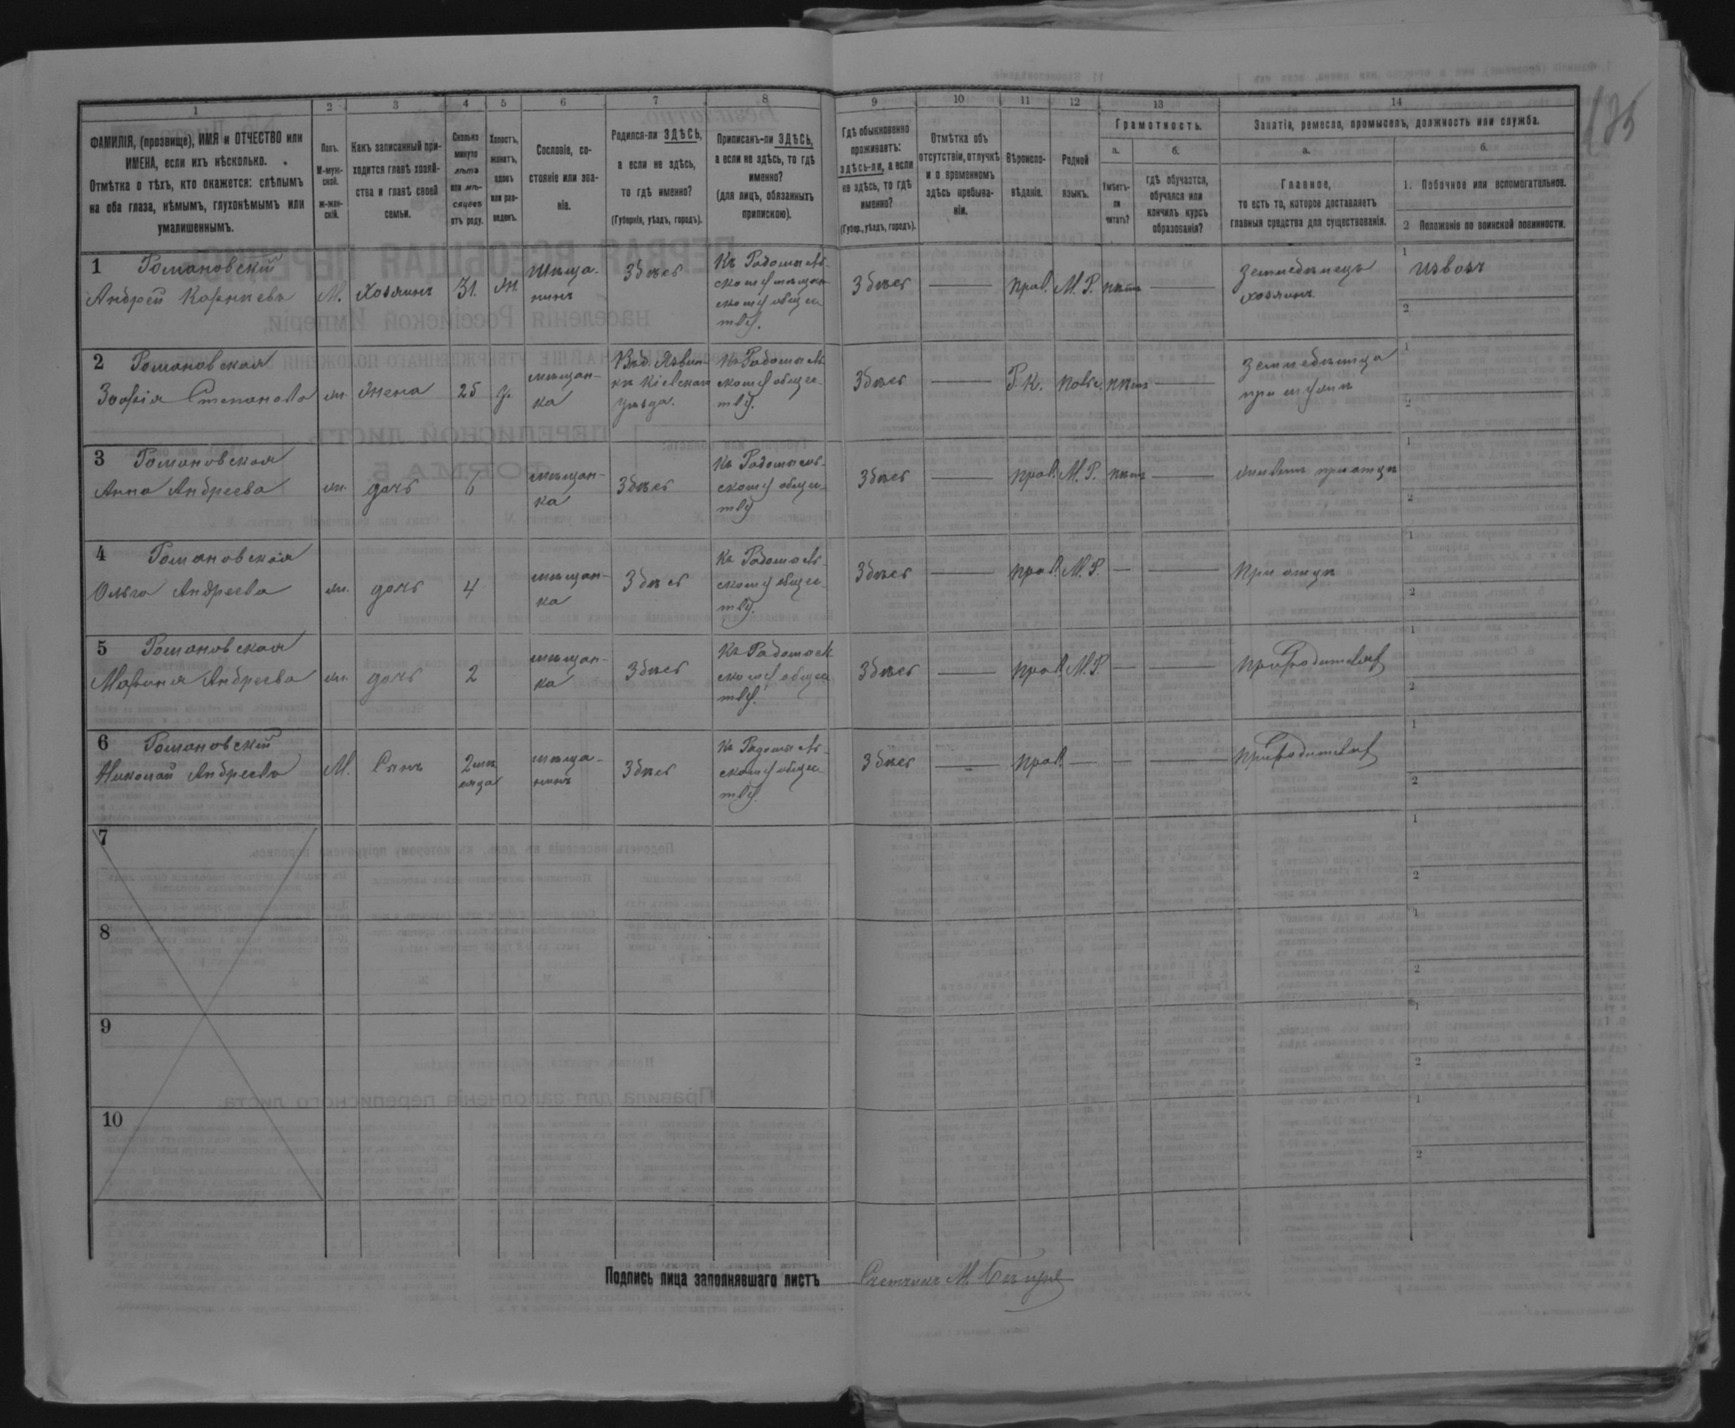 1 2 3 4 5 6 7 8 9 10 11 12 13 14
ФАМИЛІЯ, (прозвище), ИМЯ и ОТЧЕСТВО или
ИМЕНА, если ихъ нѣсколько.
Отмѣтка о тѣхъ, кто окажется: слѣпымъ
на оба глаза, нѣмымъ, глухонѣмымъ или
умалишеннымъ.
Полъ.
М-муж-
ской.
ж-жен-
скій.
Какъ записанный при-
ходится главѣ хозяй-
ства и главѣ своей
семьи.
Сколько
минуло
лѣтъ
или мѣ-
сяцевъ
отъ роду.
Холостъ,
женатъ,
вдовъ
или раз-
веденъ.
Сословіе, со-
стояніе или зва-
ніе.
Родился-ли ЗДѢСЬ,
а если не здѣсь,
то гдѣ именно?
(Губернія, уѣздъ, городъ).
Приписанъ-ли ЗДѢСЬ,
а если не здѣсь, то гдѣ
именно?
(для лицъ, обязанныхъ
припискою).
Гдѣ обыкновенно
проживаетъ:
здѣсь-ли, а если
не здѣсь, то гдѣ
именно?
(Губер., уѣздъ, городъ).
Отмѣтка объ
отсутствіи, отлучкѣ
и о временномъ
здѣсь пребыва-
ніи.
Вѣроиспо-
вѣданіе.
Родной
языкъ.
Грамотность.
а.
Умѣетъ-
ли
читать?
б.
гдѣ обучается,
обучался или
кончилъ курсъ
образованія?
Занятія, ремесло, промыселъ, должность или служба.
а.
Главное,
то есть то, которое доставляетъ
главныя средства для существованія.
б.
1. Побочное или вспомогательное.
2 Положеніе по воинской повинности.
1 Романовскій
Андрей
М. Хозяинъ 31. ж
мѣща-
нинъ
Здѣсь
Къ Радомысль-
скому мѣщан-
скому общес-
тву.
Здѣсь Прав. М. Р. нѣтъ
Земледѣлецъ
хозяинъ
1 извозъ
2
2 Романовская
Зофія Степанова
ж. Жена 25 з.
мѣщан-
ка
Кіевскаго
уѣзда.
Къ Радомысль-
скому общес-
тву.
Здѣсь Р. К. Поль. нѣтъ
Земледѣлица
при мужѣ
1
2
3 Романовская
Анна Андреева
ж. дочь
мѣщан-
ка
Здѣсь
Къ Радомысль-
скому общес-
тву
Здѣсь прав. М. Р. нѣтъ
живетъ при отцѣ
1
2
4 Романовская
Ольга Андреева
ж. дочь 4
мѣщан-
ка
Здѣсь
Къ Радомысль-
скому общес-
тву.
Здѣсь прав. М. Р.
При отцѣ
1
2
5 Романовская
Марина Андреева
ж. дочь 2
мѣщан-
ка
Здѣсь
Къ Радомысль-
скому общес-
тву.
Здѣсь прав. М. Р.
При родителяхъ
1
2
6 Романовскій
Николай Андреевъ
М. Сынъ
2 мѣ-
сяца
мѣща-
нинъ
Здѣсь
Къ Радомысль-
скому общес-
тву.
Здѣсь прав.
При родителяхъ
1
2
7
1
2
8
1
2
9
1
2
10
1
2
Подпись лица заполнявшаго листъ Счетчикъ М.